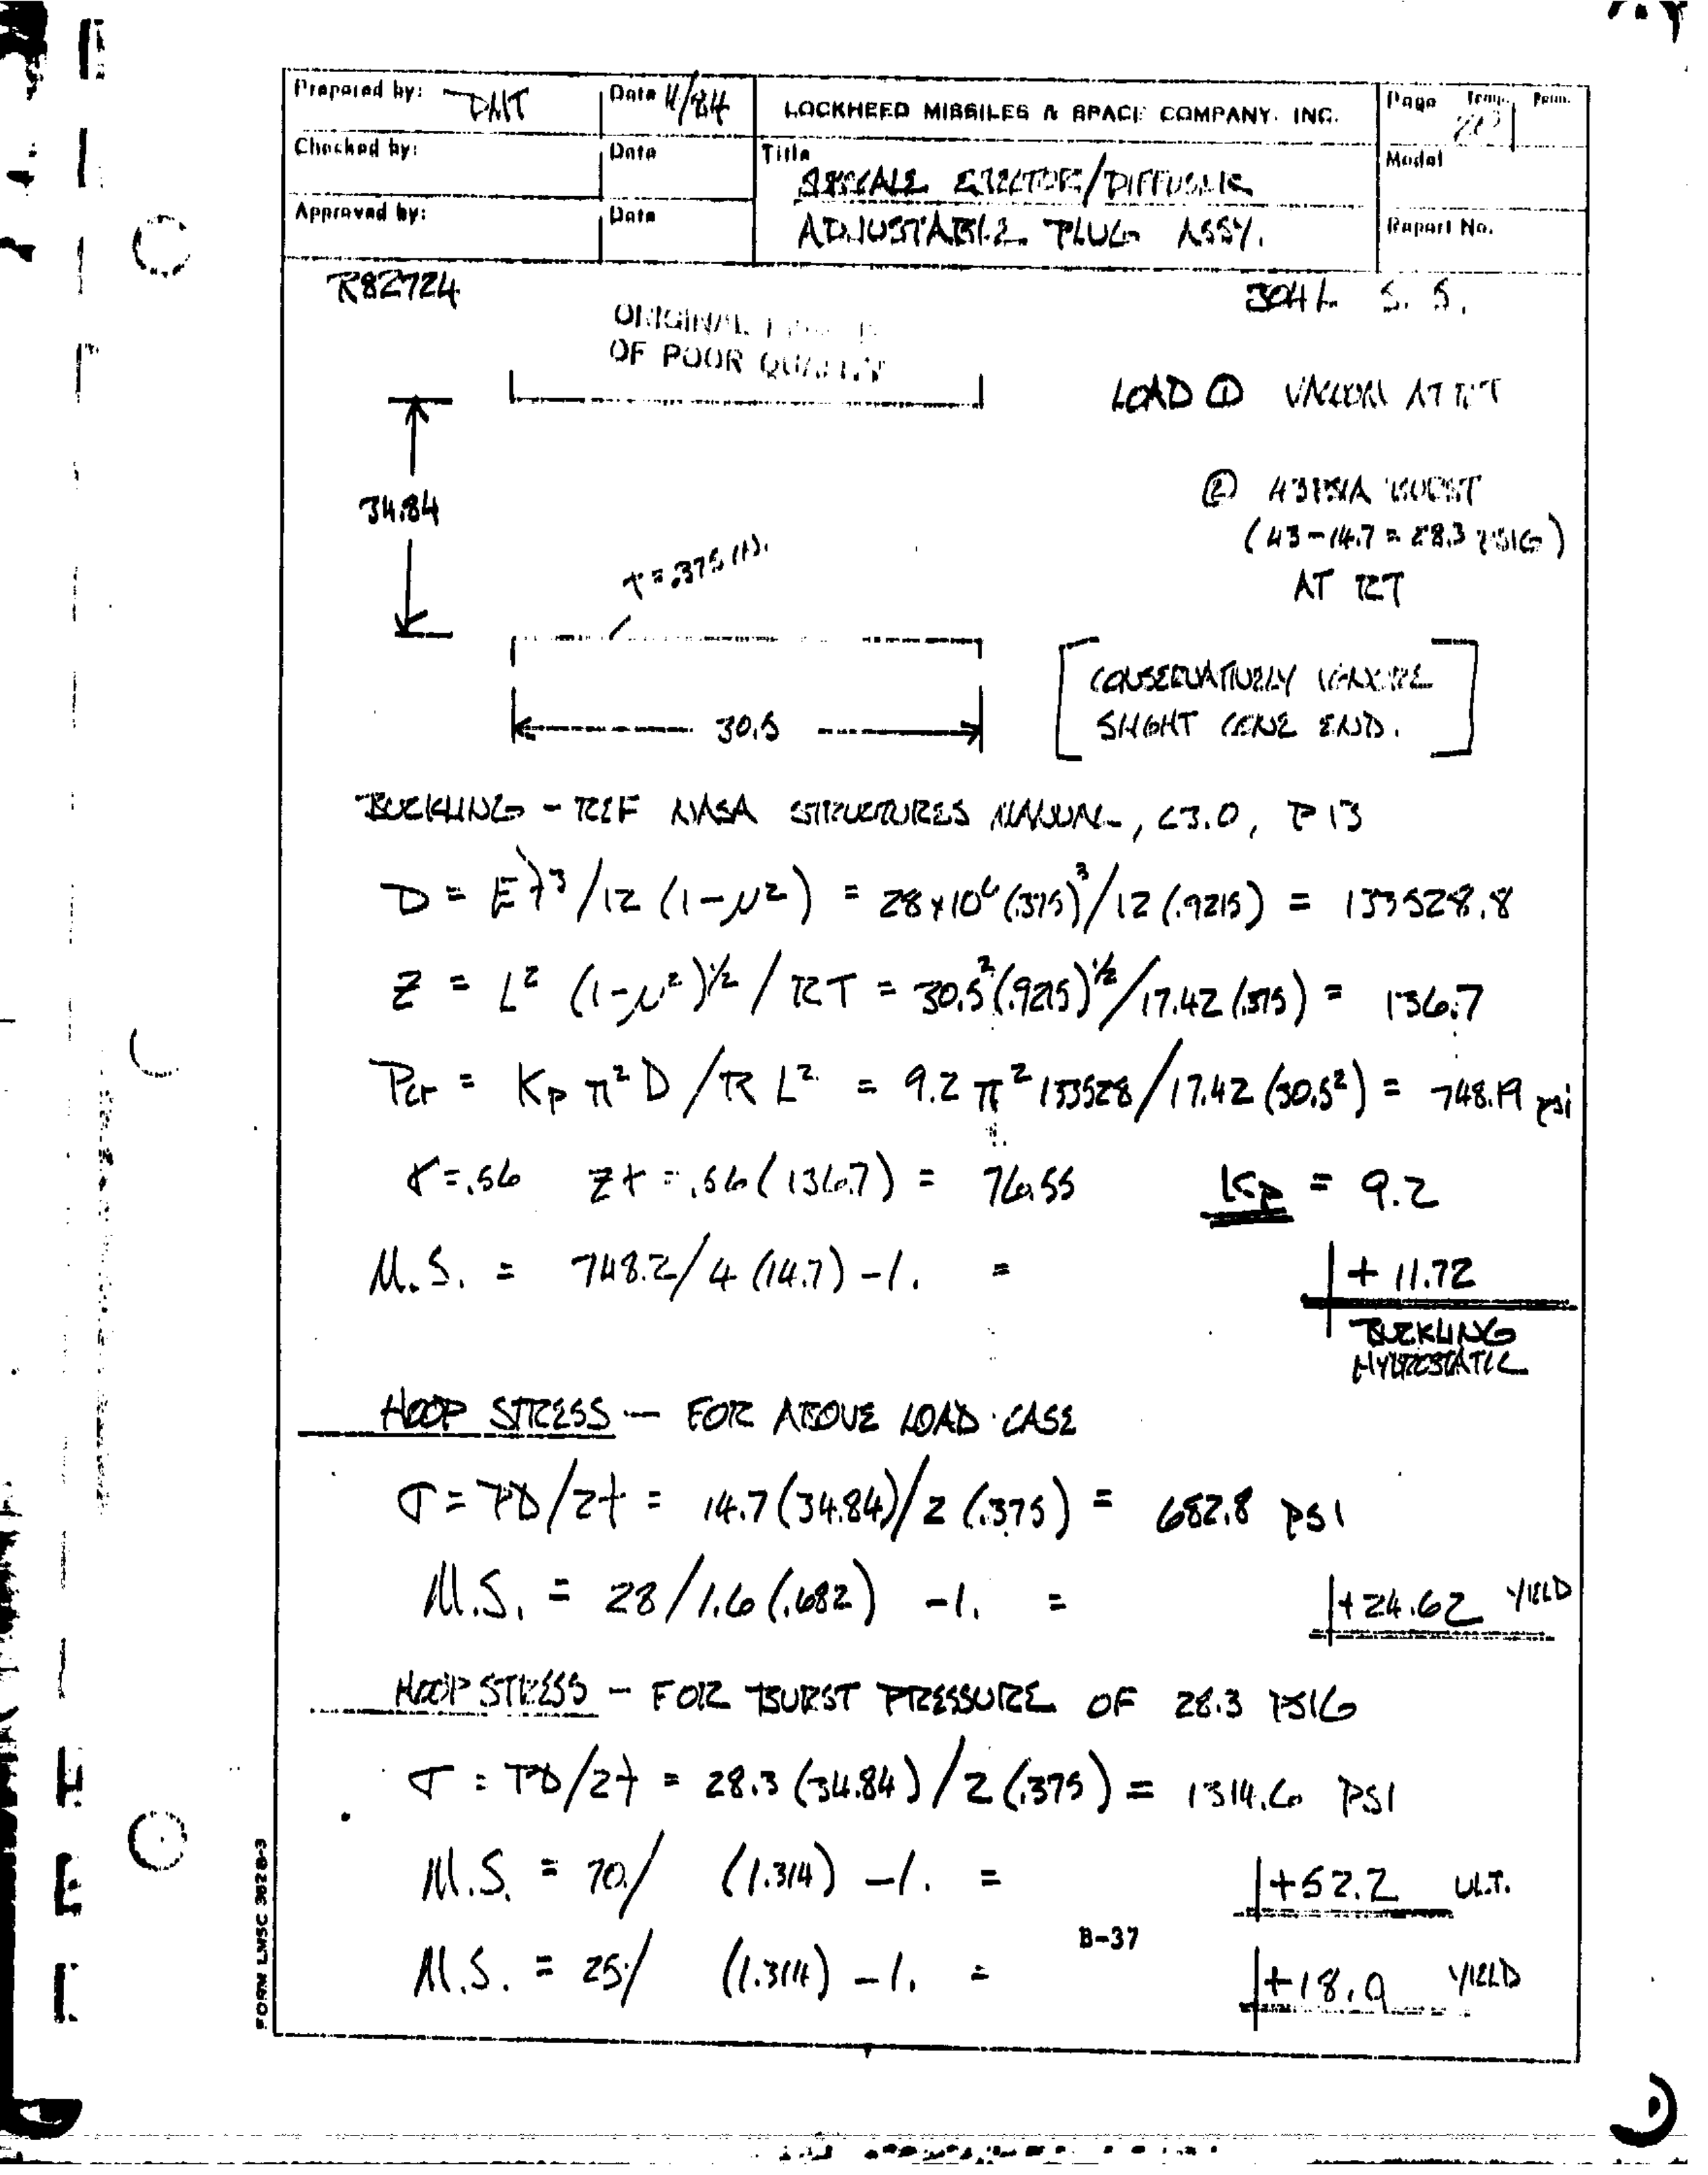 Prepared by: DMT Date 11/84 LOCKHEED MISSILES & SPACE COMPANY. INC. Page Temp. Perm.
Checked by: Date Title Model
EJECTOR/DIFFUSER
Approved by: Date ADJUSTABLE PLUG ASSY. Report No.
R82724 304L S. S.
ORIGINAL
OF POOR QUALITY
LOAD ① VACUUM AT RT
34.84
② 43 PSIA BURST
(43-14.7 = 28.3 PSIG)
AT RT
T = .375 (t).
[CONSERVATIVELY IGNORE
SLIGHT CONE END.]
30.5
BUCKLING - REF NASA STRUCTURES MANUAL, C3.0, P 13
D = Et³/12 (1-μ²) = 28x10⁶(.375)³/12 (.9215) = 133528.8
Z = L² (1-μ²)½ / RT = 30.5²(.9215)½/17.42(.375) = 136.7
Pcr = Kp π² D / R L² = 9.2 π² 133528/17.42 (30.5²) = 748.19 psi
γ=.56 Zγ = .56(136.7) = 76.55 Kp = 9.2
M.S. = 748.2/4 (14.7) -1. = +11.72
BUCKLING
HYDROSTATIC
HOOP STRESS - FOR ABOVE LOAD CASE
σ = PD/2t = 14.7(34.84)/2 (.375) = 682.8 PSI
M.S. = 28/1.6 (.682) -1. = +24.62 YIELD
HOOP STRESS - FOR BURST PRESSURE OF 28.3 PSIG
σ = PD/2t = 28.3 (34.84) / 2 (.375) = 1314.6 PSI
M.S. = 70./ (1.314) -1. = +52.2 ULT.
B-37
M.S. = 25./ (1.314) -1. = +18.0 YIELD
FORM LMSC 3628-3